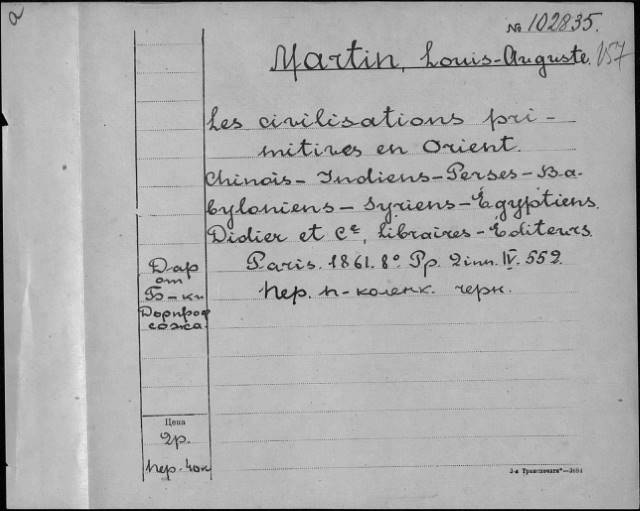 a
№ 102835.
Martin, Louis-Auguste. 157
Les civilisations pri-
mitives en Orient.
Chinois - Indiens - Perses - Ba-
byloniens - Syriens - Égyptiens.
Didier et Cᵉ, Libraires - Éditeurs.
Paris. 1861. 8° Pp. 2 inn. IV. 552.
Пер. п-коленк. черн.
Дар
от
Б-ки
Дорпроф
сожа.
Цена
2р.
Пер. 40к